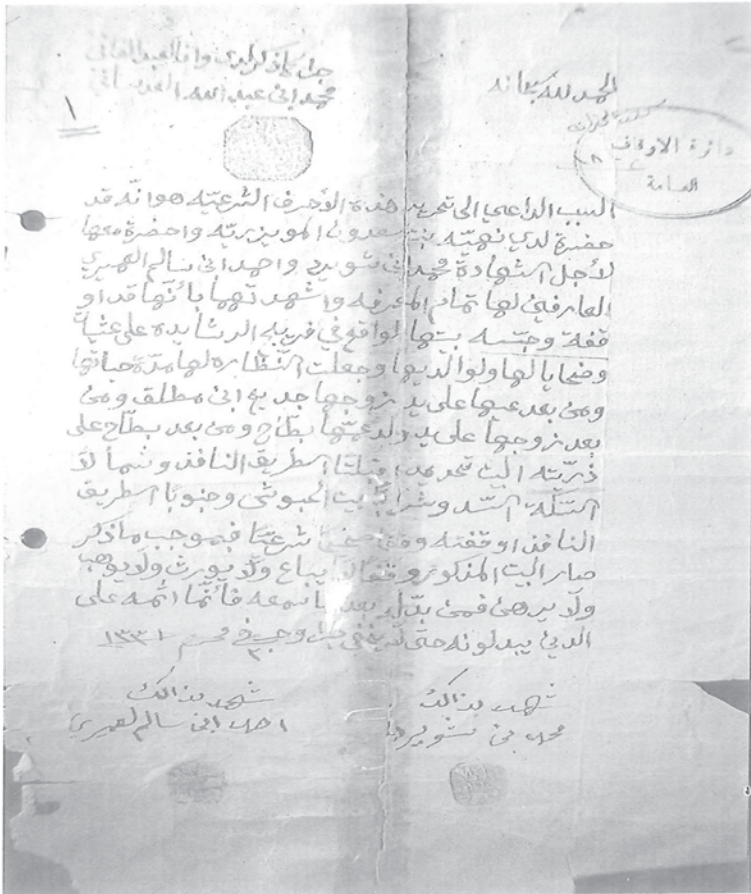 الحمد لله سبحانه
محمد ابن عبد الله العدساني
١
دائرة الاوقاف
العامة
السبب الداعي الى تحرير هذه الأحرف الشرعيّه هو انّه قد
حضرة لدي نهميّه بنت سعدون المويزريّه واحضرة معها
لأجل الشهادة محمد ابن شويرد واحمد ابن سالم العميري
العارفين لها تمام المعرفه واشهدتهما بأنّها قد او
قفة وحبّسه بيتها الواقع في فريج الرشايده على عشيّاة
وضحايا لها ولوالديها وجعلت النّظاره لها مدّة حياتها
ومن بعد عينها على يد زوجها جديع ابن مطلق ومن
بعد زوجها على يد ولد عمّها بطّاح ومن بعد بطّاح على
ذرّيته البيت تحديده قبلتا اسطريق النافذ وشمالا
السّد وشرقا بيت الحبوشي وجنوبا اسطريق
النافذ اوقفته وقفا صحيحا شرعيّا فبموجب ما ذكر
صار البيت المذكور وقفا لا يباع ولا يورث ولا يوهب
ولا يرهن فمن بدّله بعد ما سمعه فأنّما اثمه على
الذين يبدلونه حتى لا يخفى في محرم ١٣٣١
شهد بذالك
محمد بن شويرد
شهد بذالك
احمد ابن سالم العميري